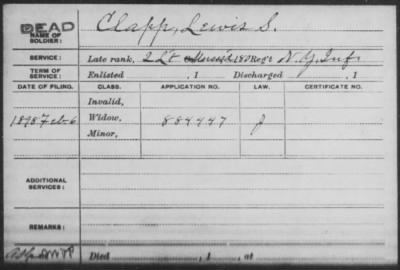 DEAD
NAME OF SOLDIER: Clapp, Lewis S.
SERVICE: Late rank, 2 Lt 180 Reg't N.Y. Inf.
TERM OF SERVICE: Enlisted , 1 Discharged , 1
DATE OF FILING. CLASS. APPLICATION NO. LAW. CERTIFICATE NO.
Invalid,
1898 Feb-6 Widow, 884447 J
Minor,
ADDITIONAL SERVICES:
REMARKS:
Died , 1 , at